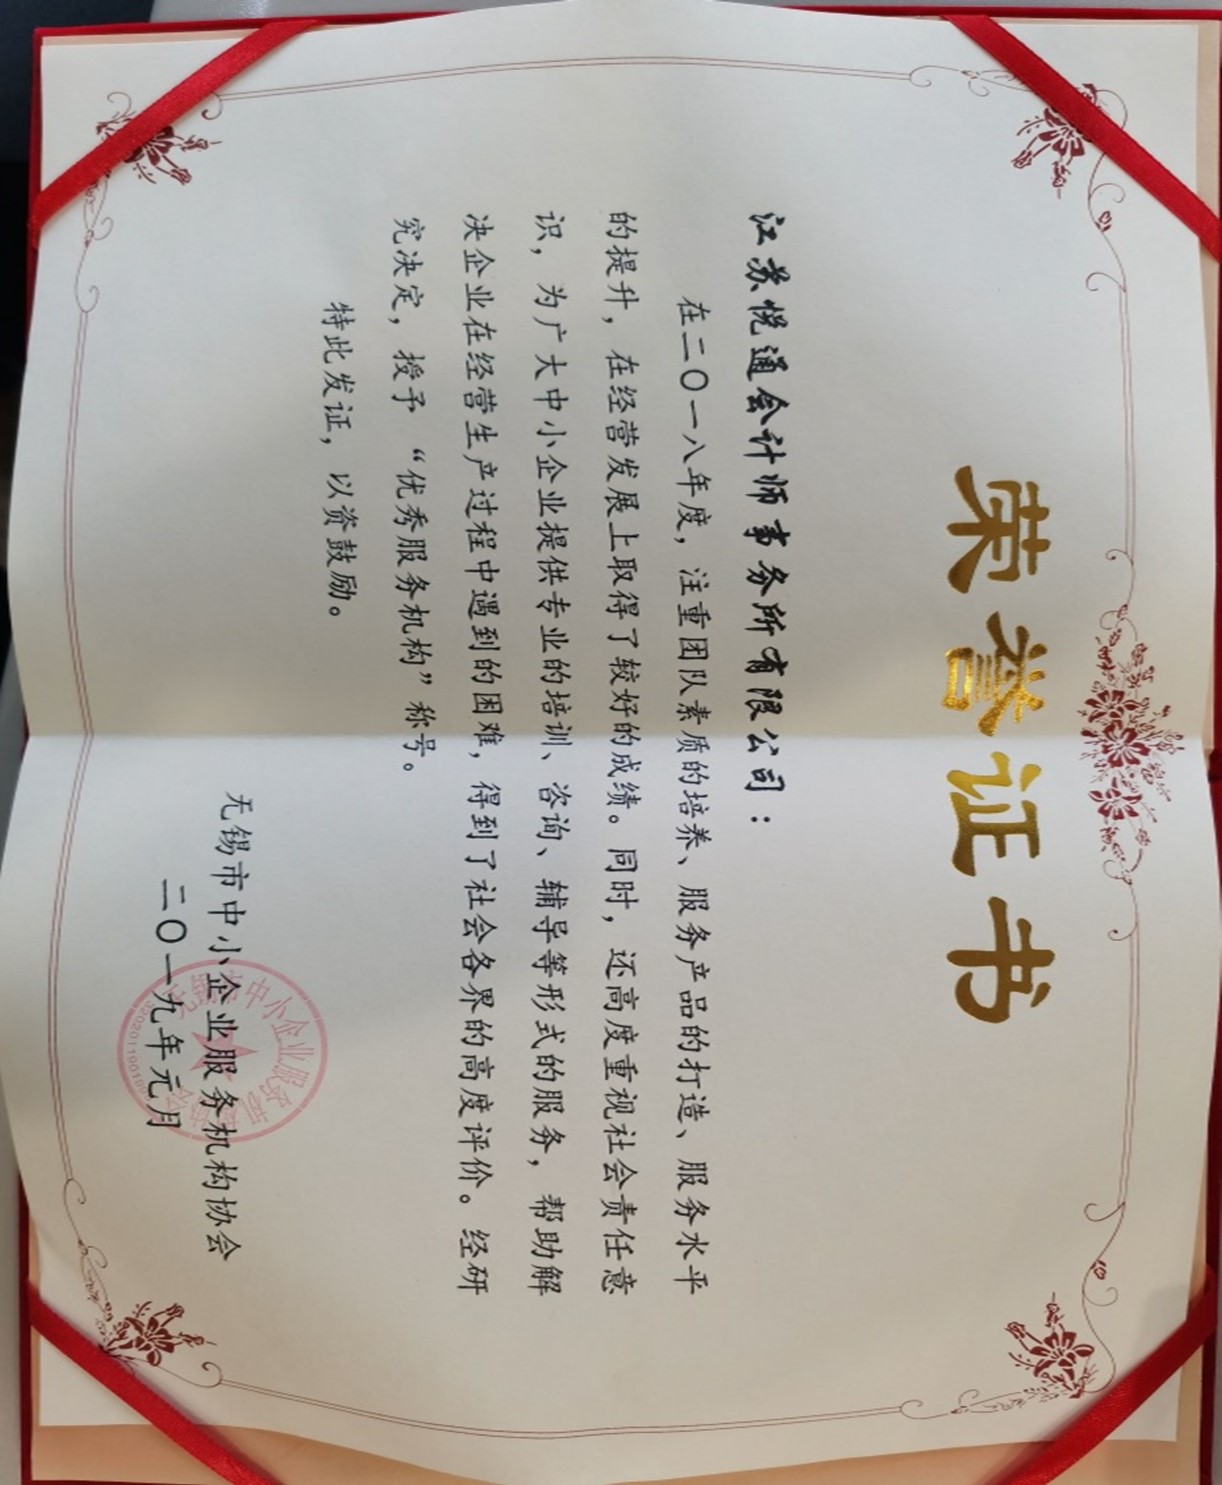 荣誉证书
江苏悦通会计师事务所有限公司：
在二〇一八年度，注重团队素质的培养、服务产品的打造、服务水平
的提升，在经营发展上取得了较好的成绩。同时，还高度重视社会责任意
识，为广大中小企业提供专业的培训、咨询、辅导等形式的服务，帮助解
决企业在经营生产过程中遇到的困难，得到了社会各界的高度评价。经研
究决定，授予“优秀服务机构”称号。
特此发证，以资鼓励。
无锡市中小企业服务机构协会
二〇一九年元月
无锡市中小企业服务机构协会